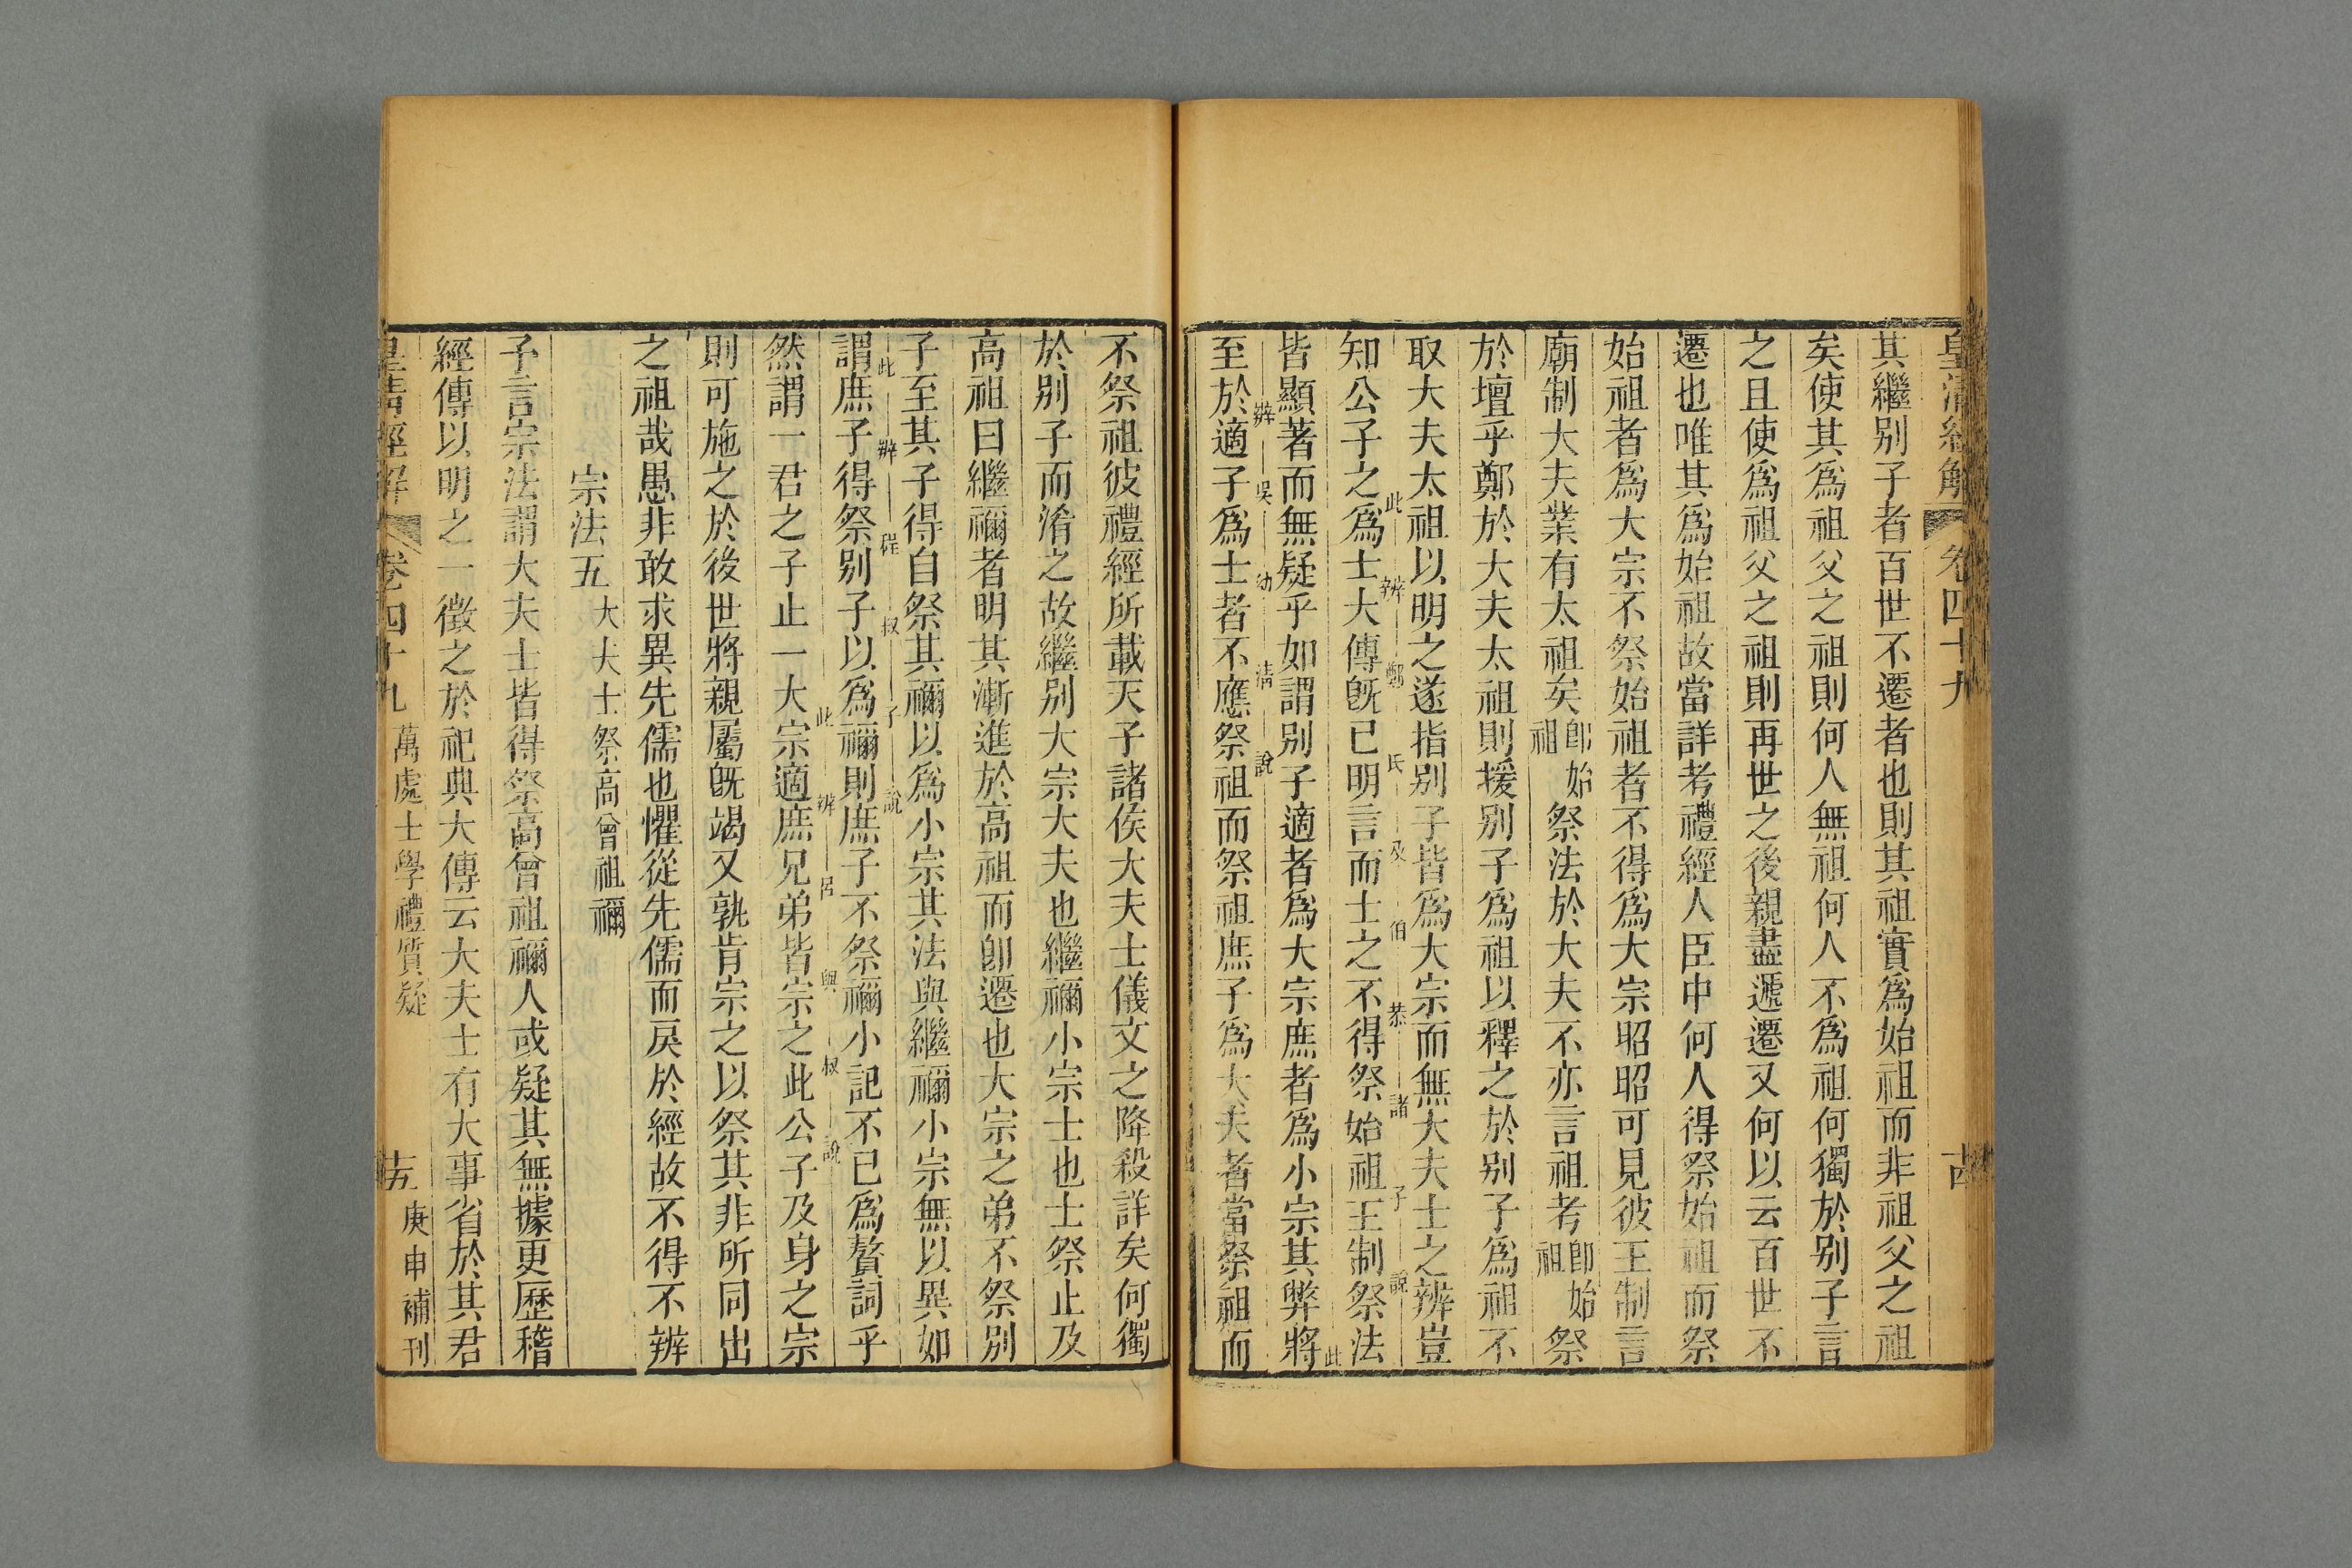 皇清經解 卷四十九 古
其繼別子者百世不遷者也則其祖實爲始祖而非祖父之祖
矣使其爲祖父之祖則何人無祖何人不爲祖何獨於別子言
之且使爲祖父之祖則再世之後親盡遞遷又何以云百世不
遷也唯其爲始祖故當詳考禮經人臣中何人得祭始祖而祭
始祖者爲大宗不祭始祖者不得爲大宗昭昭可見彼王制言
廟制大夫業有太祖矣卽始祖祭法於大夫不亦言祖考卽始祖祭
於壇乎鄭於大夫太祖則援別子爲祖以釋之於別子爲祖不
取大夫太祖以明之遂指別子皆爲大宗而無大夫士之辨豈
此辨鄭氏及伯恭諸子說
知公子之爲士大傳旣已明言而士之不得祭始祖王制祭法
此
皆顯著而無疑乎如謂別子適者爲大宗庶者爲小宗其弊將
辨吳幼清說
至於適子爲士者不應祭祖而祭祖庶子爲大夫者當祭祖而
不祭祖彼禮經所載天子諸侯大夫士儀文之降殺詳矣何獨
於別子而淆之故繼別大宗大夫也繼禰小宗士也士祭止及
高祖曰繼禰者明其漸進於高祖而卽遷也大宗之弟不祭別
子至其子得自祭其禰以爲小宗其法與繼禰小宗無以異如
此辨程叔子說
謂庶子得祭別子以爲禰則庶子不祭禰小記不已爲贅詞乎
此辨呂與叔說
然謂一君之子止一大宗適庶兄弟皆宗之此公子及身之宗
則可施之於後世將親屬旣竭又孰肯宗之以祭其非所同出
之祖哉愚非敢求異先儒也懼從先儒而戾於經故不得不辨
宗法五 大夫士祭高曾祖禰
予言宗法謂大夫士皆得祭高曾祖禰人或疑其無據更歷稽
經傳以明之一徵之於祀典大傳云大夫士有大事省於其君
皇清經解 卷四十九 萬處士學禮質疑 十五 庚申補刊